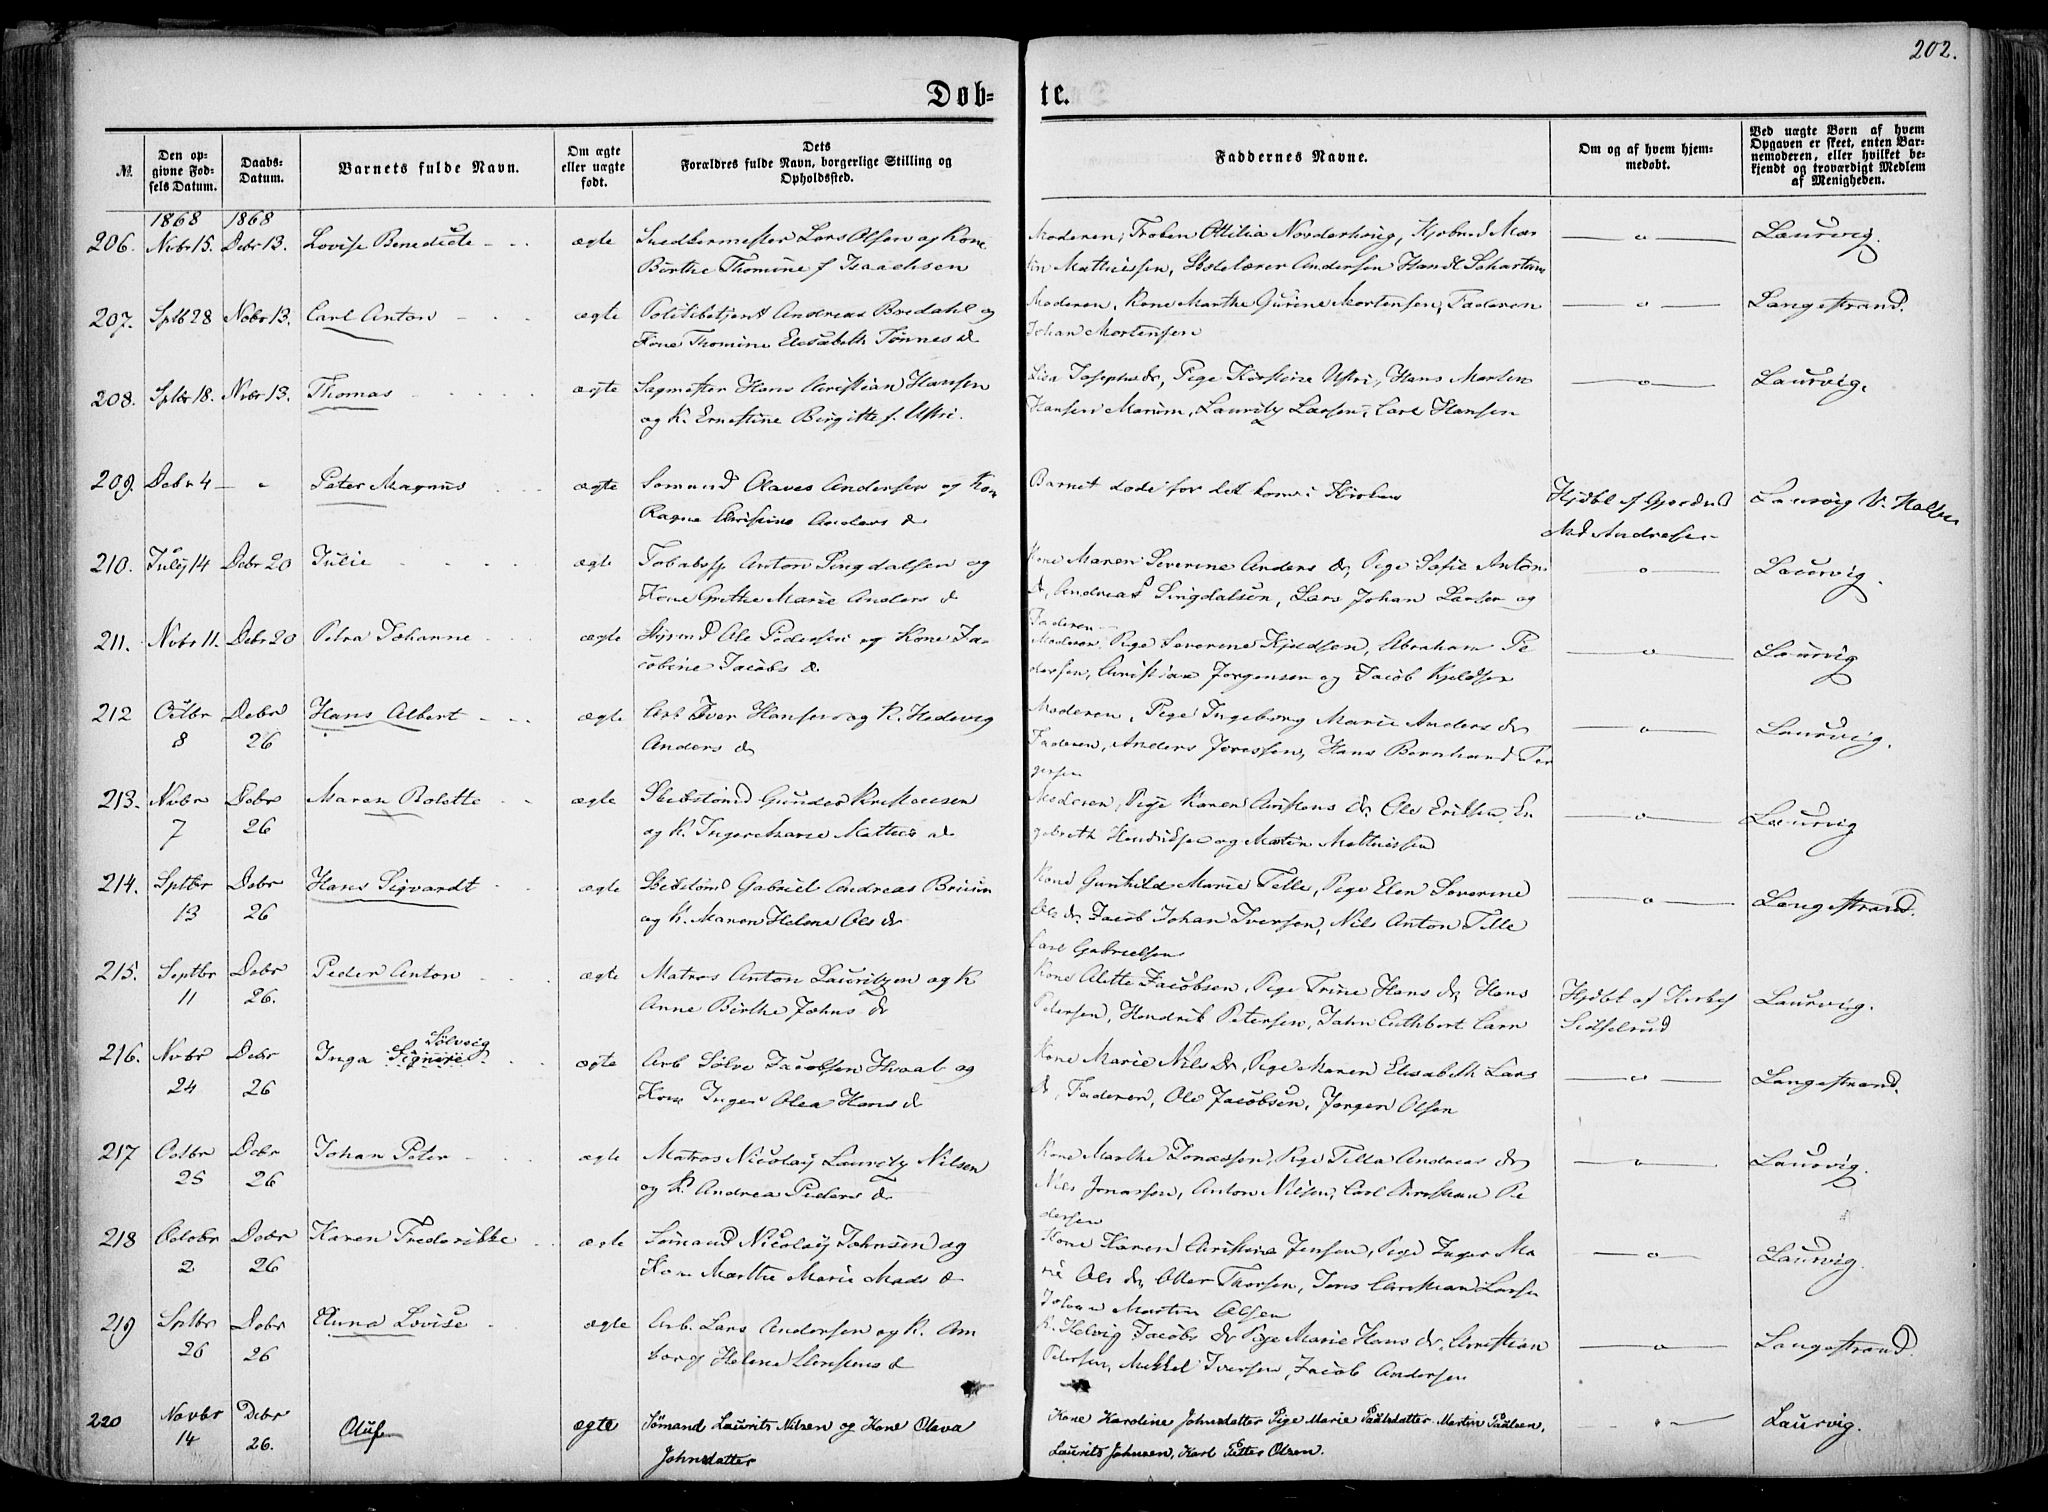 202.
Døb=
te.
№
Den op=
givne Fød=
sels Datum.
Daabs=
Datum.
Barnets fulde Navn.
Om ægte
eller uægte
født.
Dets
Forældres fulde Navn, borgerlige Stilling og
Opholdssted.
Faddernes Navne.
Om og af hvem hjem=
medøbt.
Ved uægte Børn af hvem
Opgaven er skeet, enten Bar=
nemoderen, eller hvilket be=
kjendt og troværdigt Medlem
af Menigheden.
1868 1868
206. Nvbr 15. Debr 13. Lovise Benedicte ægte Snedkermester Lars Olsen og Kone Moderen, Frøken Ottilia Nordenhoug, Laurvig.
Birthe Thomine f Isaachsen Mathiessen, Andersen
207. Sptb 28 Nobr 13. Carl Anton ægte Politibetjent Andreas Bredahl og Moderen, Kone Marthe Gurine Mortensen, Faderen Langestrand.
Kone Thomine Elisabeth Tønnes d Johan Mortensen
208. Sptbr 18. Nvbr 13. Thomas ægte Sagmester Hans Christian Hansen Lisa Josephsdr, Pige Kirstine, Hans Morten Laurvig.
og K. Ernestine Birgitte f. Hansen, Lauritz Larsen, Carl Hansen
209. Debr 4 Peter Magnus ægte Sømand Olaves Andersen og Kone Barnet døde før det kom i Kirken Hjdbt af Laurvig
Ragna Christine Anders d Andresen
210. July 14 Debr 20 Julie ægte Anton Singdalsen og Kone Maren Severine Anders dr, Pige Sofie Anton Laurvig.
Kone Grethe Marie Anders d d, Andreas Singdalsen, Lars Johan Larsen og
Faderen
211. Nvbr 11. Debr 20 Petra Johanne ægte Styrmd Ole Pedersen og Kone Ja= Moderen, Pige Severine Kjeldsen, Abraham Pe Laurvig
cobine Jacobs d dersen, Christian Jørgensen og Jacob Kjeldsen
212 Octbr Debr Hans Albert ægte Arb Iver Hansen og K. Hedevig Moderen, Pige Ingeborg Marie Anders dr Laurvig.
8 26 Anders d Faderen, Anders Hans Bernhard
213. Nvbr Debr Maren Bolette ægte Skibstømd Gunder Kristensen Moderen, Pige Karen Christens dr, Ole Eriksen, En Laurvig
7 26 og K. Inger Marie Mathis d gebreth Hendriksen og Martin Mathissen
214. Sptbr Debr Hans Sigvardt ægte Skibstømd Gabriel Andreas Kone Gunhild Marie Telle, Pige Elen Severine Langestrand.
13 26 og K. Maren Helene Ols dr Ols dr, Jacob Johan Iversen, Nils Anton Telle
Carl Gabrielsen
215. Septbr Debr Peder Anton ægte Matros Anton Lauritzen og K Kone Alette Jacobsen, Pige Trine Hans dr, Hans Hjdbt af Laurvig.
11 26. Anne Birthe Johns d Pedersen, Hendrik Petersen, John Cuthbert
Sølveig
216. Nvbr Debr Inga Signere ægte Arb Sølve Jacobsen og Kone Marie Nils dr, Pige Maren Elisabeth Lars Langestrand.
24 26 Kone Inger Olea Hans d d, Faderen, Ole Jacobsen, Jørgen Olsen
217 Octbr Debr Johan Peter ægte Matros Nicolay Lauritz Nilsen Kone Marthe Jonassen, Pige Tilla Andreas dr Laurvig.
25 26 og K. Andrea Peders d Nils Jonassen, Anton Nilsen, Carl Christian Pe
dersen
218 Octobr Debr Karen Frederikke ægte Sømand Nicolay Johnsen og Kone Karen Christine Jensen, Pige Inger Ma Laurvig.
2 26 Kone Marthe Marie Mads d rie Ols dr, Thorsen, Jens Christian Larsen
Johan Martin Olsen
219 Sptbr Debr Anna Lovise ægte Arb. Lars Andersen og K. K. Helvig Jacobs dr, Pige Marie Hans dr, Christian Langestrand.
26 26 borg Helene d Pedersen, Mikkel Iversen, Jacob Andersen
220 Novbr Debr Oluf ægte Sømand Laurits Nilsen og Kone Olava Kone Karoline Johnsdatter Pige Marie Paulsdatter Martin Paulsen, Laurvig.
14 26. Johnsdatter Laurits Johnsen, Karl Petter Olsen.